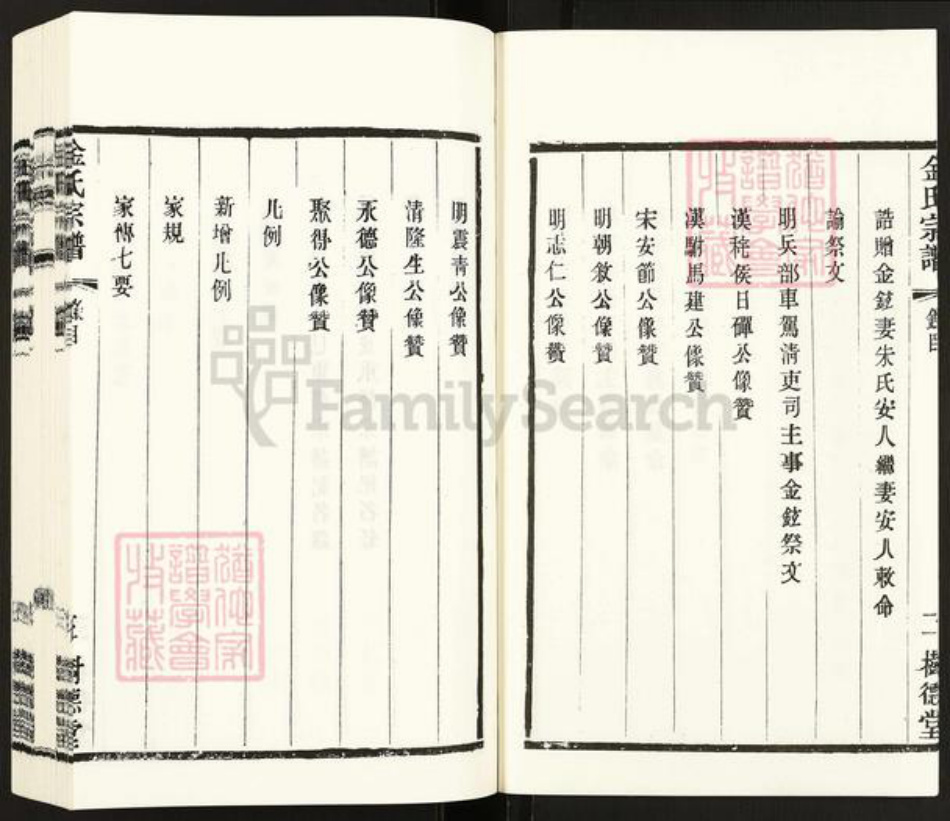 誥贈金鉉妻朱氏安人繼妻安人敕命
諭祭文
明兵部車駕清吏司主事金鉉祭文
漢秺侯日磾公像贊
漢駙馬建公像贊
宋安節公像贊
明朝敘公像贊
明志仁公像贊
金氏宗譜
樹德堂
明震青公像贊
清隆生公像贊
永德公像贊
聚得公像贊
凡例
新增凡例
家規
家傳七要
金氏宗譜
樹德堂
FamilySearch